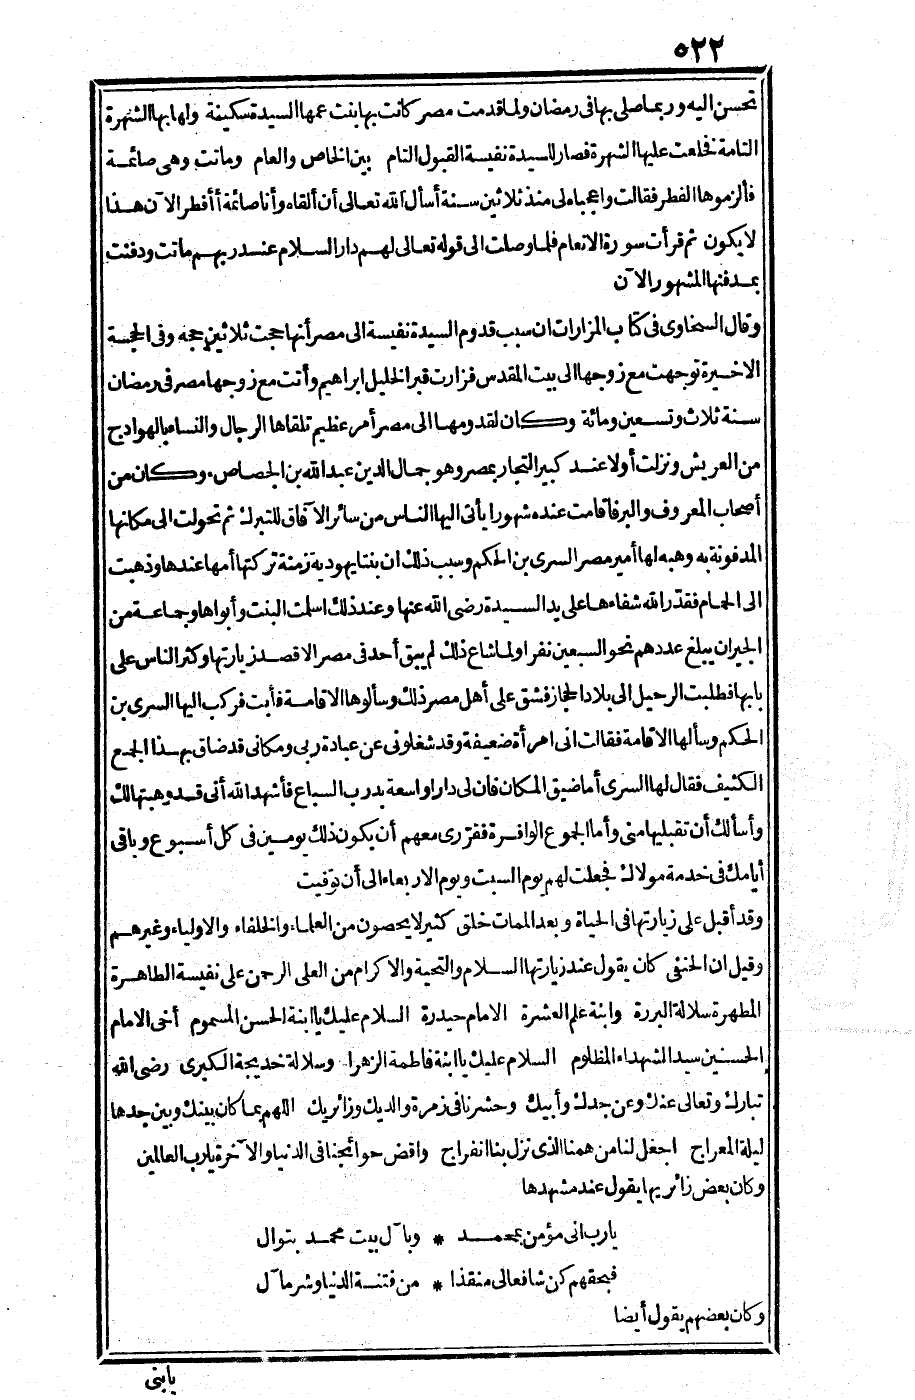 ٥٢٢
تحسن اليه وربما صلى بها فى رمضان ولما قدمت مصر كانت بها بنت عمها السيدة سكينة ولها بها الشهرة
التامة فخلعت عليها الشهرة فصار للسيدة نفيسة القبول التام بين الخاص والعام وماتت وهى صائمة
فألزموها الفطر فقالت واعجباه لى منذ ثلاثين سنة أسأل الله تعالى أن ألقاه وأنا صائمة أأفطر الآن هذا
لا يكون ثم قرأت سورة الانعام فلما وصلت الى قوله تعالى لهم دار السلام عند ربهم ماتت ودفنت
بمدفنها المشهور الآن
وقال السخاوى فى كتاب المزارات ان سبب قدوم السيدة نفيسة الى مصر أنها حجت ثلاثين حجة وفى الحجة
الاخيرة توجهت مع زوجها الى بيت المقدس فزارت قبر الخليل ابراهيم وأتت مع زوجها مصر فى رمضان
سنة ثلاث وتسعين ومائة وكان لقدومها الى مصر أمر عظيم تلقاها الرجال والنساء بالهوادج
من العريش ونزلت أولا عند كبير التجار بمصر وهو جمال الدين عبد الله بن الجصاص وكان من
أصحاب المعروف والبر فأقامت عنده شهورا يأتى اليها الناس من سائر الآفاق للتبرك ثم تحولت الى مكانها
المدفونة به وهبه لها أمير مصر السرى بن الحكم وسبب ذلك ان بنتا يهودية زمنة تركتها أمها عندها وذهبت
الى الحمام فقدر الله شفاءها على يد السيدة رضى الله عنها وعند ذلك اسلمت البنت وأبواها وجماعة من
الجيران يبلغ عددهم نحو السبعين نفرا ولما شاع ذلك لم يبق أحد فى مصر الا قصد زيارتها وكثر الناس على
بابها فطلبت الرحيل الى بلاد الحجاز فشق على أهل مصر ذلك وسألوها الاقامة فأبت فركب اليها السرى بن
الحكم وسألها الاقامة فقالت انى امرأة ضعيفة وقد شغلونى عن عبادة ربى ومكانى قد ضاق بهذا الجمع
الكثيف فقال لها السرى أما ضيق المكان فان لى دارا واسعة بدرب السباع فأشهد الله أنى قد وهبتها لك
وأسألك أن تقبليها منى وأما الجموع الوافرة فقررى معهم أن يكون ذلك يومين فى كل أسبوع وباقى
أيامك فى خدمة مولاك فجعلت لهم يوم السبت ويوم الاربعاء الى أن توفيت
وقد أقبل على زيارتها فى الحياة وبعد الممات خلق كثير لا يحصون من العلماء والخلفاء والاولياء وغيرهم
وقيل ان الحنفى كان يقول عند زيارتها السلام والتحية والاكرام من العلى الرحمن على نفيسة الطاهرة
المطهرة سلالة البررة وابنة علم العشرة الامام حيدرة السلام عليك يا ابنة الحسن المسموم أخى الامام
الحسين سيد الشهداء المظلوم السلام عليك يا ابنة فاطمة الزهرا وسلالة خديجة الكبرى رضى الله
تبارك وتعالى عنك وعن جدك وأبيك وحشرنا فى زمرة والديك وزائريك اللهم بما كان بينك وبين جدها
ليلة المعراج اجعل لنا من همنا الذى نزل بنا انفراج واقض حوائجنا فى الدنيا والآخرة يا رب العالمين
وكان بعض زائريها يقول عند مشهدها
يا رب انى مؤمن بمحمد * وبآل بيت محمد بتوال
فبحقهم كن شافعا لى منقذا * من فتنة الدنيا وشر مآل
وكان بعضهم يقول أيضا
يا بنى